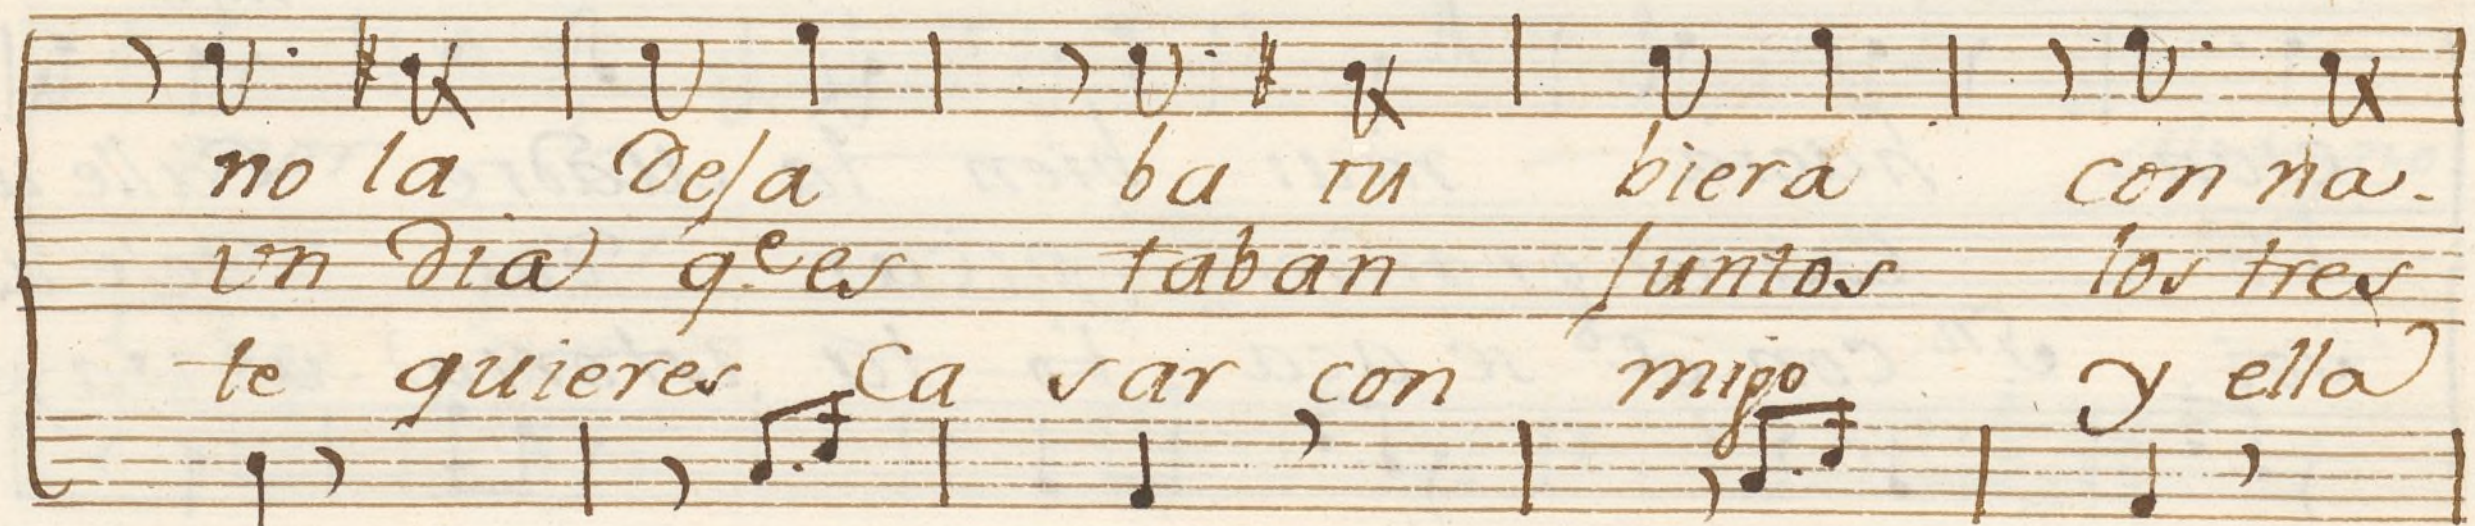 no la deja ba tu biera con na.
un dia q.e es taban juntos los tres
te quieres Ca sar con migo y ella